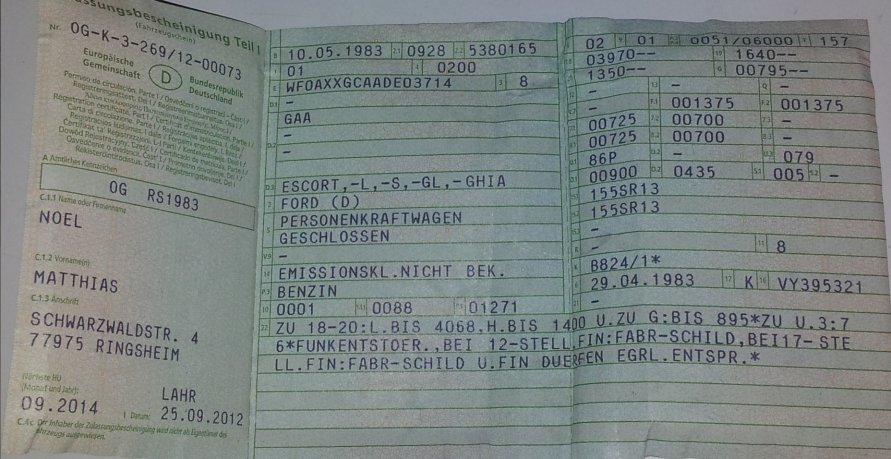 assungsbescheinigung Teil I
(Fahrzeugschein)
Nr. OG-K-3-269/12-00073
Europäische Gemeinschaft
D
Bundesrepublik Deutschland
A Amtliches Kennzeichen
OG RS1983
C.1.1 Name oder Firmenname
NOEL
C.1.2 Vorname(n)
MATTHIAS
C.1.3 Anschrift
SCHWARZWALDSTR. 4
77975 RINGSHEIM
Nächste HU
(Monat und Jahr):
09.2014
LAHR
I Datum: 25.09.2012
C.4c Der Inhaber der Zulassungsbescheinigung wird nicht als Eigentümer des
Fahrzeugs ausgewiesen.
B 10.05.1983 2.1 0928 2.2 5380165
J 01 4 0200
E WF0AXXGCAADE03714 3 8
D.1 -
GAA
D.2 -
-
D.3 ESCORT,-L,-S,-GL,-GHIA
2 FORD (D)
5 PERSONENKRAFTWAGEN
GESCHLOSSEN
V.9 -
14 EMISSIONSKL.NICHT BEK.
P.3 BENZIN
10 0001 14.1 0088 P.1 01271
22 ZU 18-20:L.BIS 4068.H.BIS 1400 U.ZU G:BIS 895*ZU U.3:7
6*FUNKENTSTOER.,BEI 12-STELL.FIN:FABR-SCHILD,BEI17-STE
LL.FIN:FABR-SCHILD U.FIN DUERFEN EGRL.ENTSPR.*
02 9 01 0051/06000 T 157
03970-- 19 1640--
1350-- G 00795--
- 13 - Q -
- F.1 001375 F.2 001375
00725 7.2 00700 7.3 -
00725 8.2 00700 8.3 -
86P - U.3 079
00900 0.2 0435 S.1 005 S.2 -
155SR13
155SR13
-
- 11 8
K B824/1*
6 29.04.1983 17 K 16 VY395321
21 -